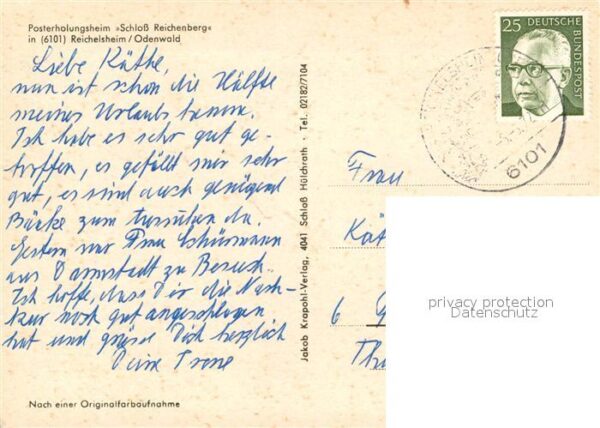 Posterholungsheim »Schloß Reichenberg«
in (6101) Reichelsheim/Odenwald
Liebe Käthe,
nun ist schon die Hälfte
meines Urlaubs herum.
Ich habe es sehr gut ge-
troffen, es gefällt mir sehr
gut, es sind auch genügend
Bänke zum Ausruhen da.
Gestern war Frau Schürmann
aus Darmstadt zu Besuch.
Ich hoffe, dass Dir die Nach-
kur noch gut angeschlagen
hat und grüsse Dich herzlich
Deine
Nach einer Originalfarbaufnahme
Jakob Krapohl-Verlag, 4041 Schloß Hülchrath · Tel. 02182/7104
25 DEUTSCHE
BUNDESPOST
6101
Frau
Kät
6
Th
privacy protection
Datenschutz